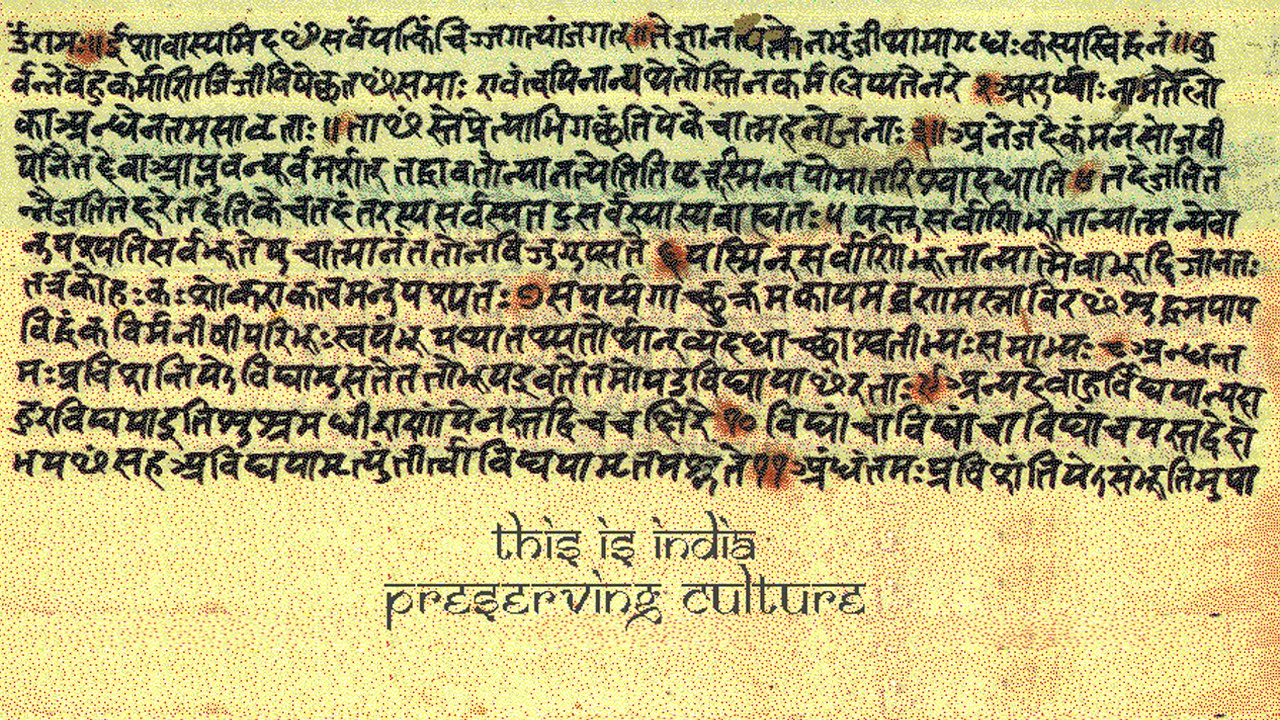 ॐरामः॥ईशावास्यमिदꣳसर्वंयत्किंचिज्जगत्यांजगत्॥तेन भुंजीथामागृधःकस्यस्विद्धनं॥कु
र्वन्नेवेहकर्माणिजिजीविषेच्छतꣳसमाः एवंत्वयिनान्यथेतोस्तिनकर्मलिप्यतेनरे २ असूर्य्याःनामतेलो
काअन्धेनतमसावृताः॥ताꣳस्तेप्रेत्याभिगच्छंतियेकेचात्महनोजनाः ३॥अनेजदेकंमनसोजवी
योनैनद्देवाआप्नुवन्पूर्वमर्शत् तद्धावतोन्यानत्येतितिष्ठत्तस्मिन्नपोमातरिश्वादधाति ४ तदेजतित
न्नैजतितद्दूरेतद्वंतिके तदंतरस्यसर्वस्यतदुसर्वस्यास्यबाह्यतः ५ यस्तुसर्वाणिभूतान्यात्मन्येवा
नुपश्यतिसर्वभूतेषुचात्मानंततोनविजुगुप्सते ६ यस्मिन्सर्वाणिभूतान्यात्मैवाभूद्विजानतः
तत्रकोमोहःकःशोकएकत्वमनुपश्यतः ७ सपर्य्यगाच्छुक्रमकायमव्रणमस्नाविरꣳशुद्धमपाप
विद्धंकविर्मनीषीपरिभूःस्वयंभूर्याथातथ्यतोर्थान्व्यदधाच्छाश्वतीभ्यःसमाभ्यः ८ अन्धन्त
मःप्रविशन्तियेऽविद्यामुपासतेततोभूयइवतेतमोयउविद्यायाꣳरताः ९ अन्यदेवाहुर्विद्ययान्यदा
हुरविद्ययाइतिशुश्रुमधीराणांयेनस्तद्विचचक्षिरे १० विद्यांचाविद्यांचयस्तद्वेदो
भयꣳसहअविद्ययामृत्युंतीर्त्वाविद्ययामृतमश्नुते ११ अंधंतमःप्रविशंतियेऽसंभूतिमुपा
this is india
preserving culture